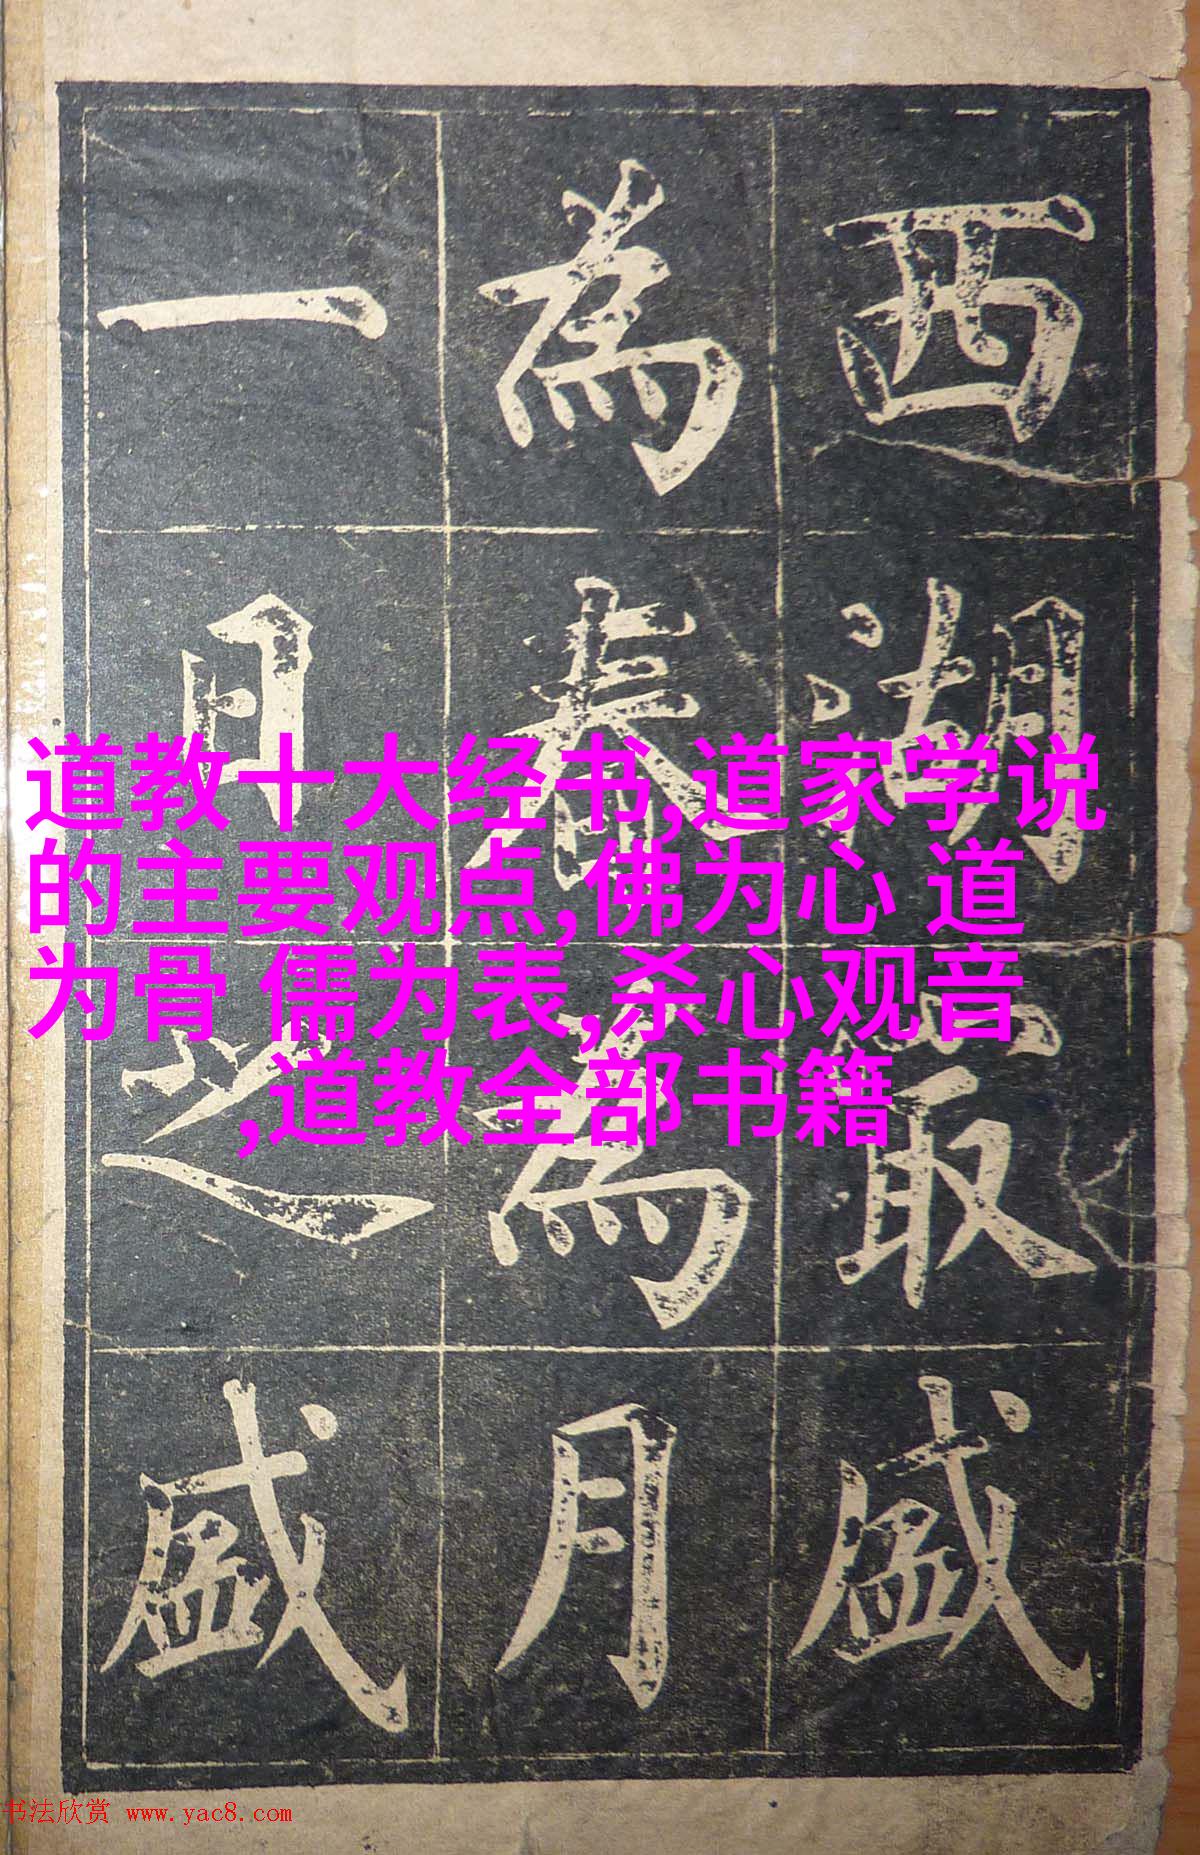 西湖最盛
为春为月
一日之盛
道教十大经书,道家学说
的主要观点,佛为心 道
为骨 儒为表,杀心观音
,道教全部书籍
书法欣赏 www.yac8.com